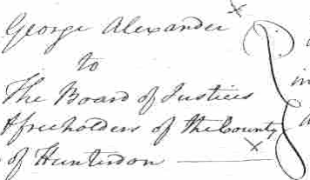 George Alexander
to
The Board of Justices
& freeholders of the County
of Hunterdon